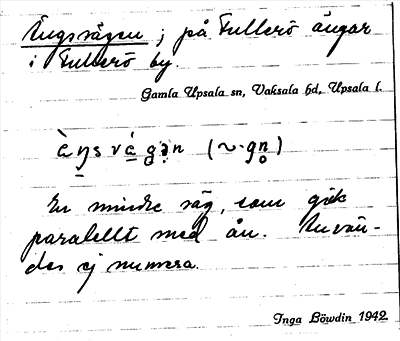 Ängsvägen; på Fullerö ängar
i Fullerö by.
Gamla Upsala sn, Vaksala hd, Upsala l.
En mindre väg, som gick
paralellt med ån. Använ-
des ej numera.
Inga Löwdin 1942